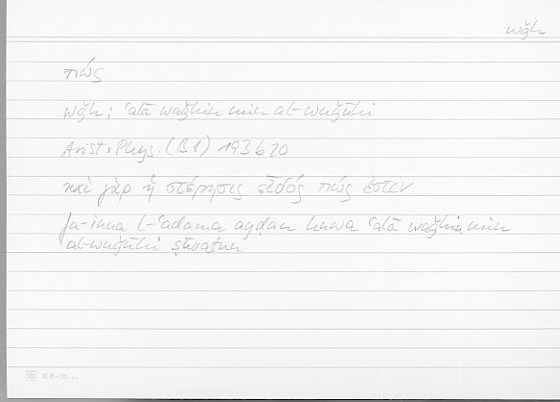 wǧh
πώς
wǧh: ʿalā waǧhin min al-wuǧūhi
Arist. Phys. (B1) 193b20
καὶ γὰρ ἡ στέρησις εἶδός πώς ἐστιν
fa-inna l-ʿadama ayḍan huwa ʿalā waǧhin min
al-wuǧūhi ṣūratun